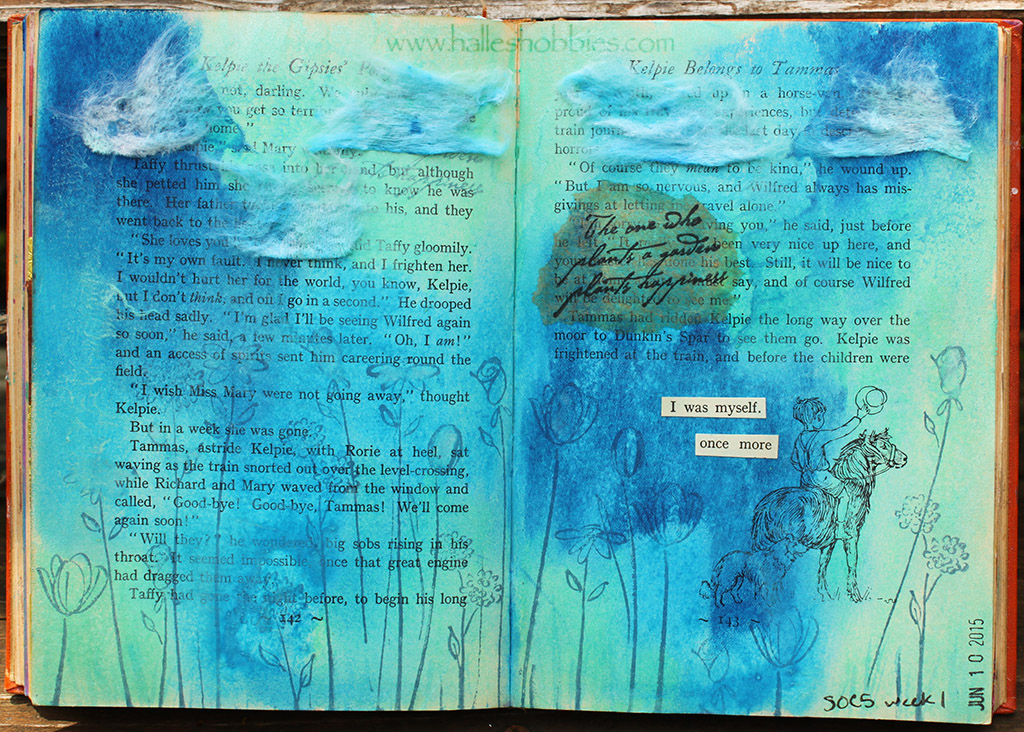 www.halleshobbies.com
Kelpie the Gipsies'
not, darling.
you get so
home"
said Mary
Taffy thrust into her hand, but although
she petted him she to know he was
there. Her father to his, and they
went back to the
"She loves you Taffy gloomily.
"It's my own fault. I never think, and I frighten her.
I wouldn't hurt her for the world, you know, Kelpie,
but I don't think, and off I go in a second." He drooped
his head sadly. "I'm glad I'll be seeing Wilfred again
so soon," he said, a few minutes later. "Oh, I am!"
and an access of spirits sent him careering round the
field.
"I wish Miss Mary were not going away," thought
Kelpie.
But in a week she was gone.
Tammas, astride Kelpie, with Rorie at heel, sat
waving as the train snorted out over the level-crossing,
while Richard and Mary waved from the window and
called, "Good-bye! Good-bye, Tammas! We'll come
again soon!"
"Will they?" he wondered, big sobs rising in his
throat. It seemed impossible once that great engine
had dragged them away.
Taffy had gone the night before, to begin his long
~ 142 ~
Kelpie Belongs to Tammas
up in a horse-van
train last day,
horror
"Of course they mean to be kind," he wound up.
"But I am so nervous, and Wilfred always has mis-
givings at letting me travel alone."
you," he said, just before
he left. "It been very nice up here, and
you done his best. Still, it will be nice to
be at say, and of course Wilfred
will be delighted to see me."
The one who
plants a garden
plants happiness
Tammas had ridden Kelpie the long way over the
moor to Dunkin's Spar to see them go. Kelpie was
frightened at the train, and before the children were
I was myself.
once more
~ 143 ~
SOC5 week 1
JUN 10 2015